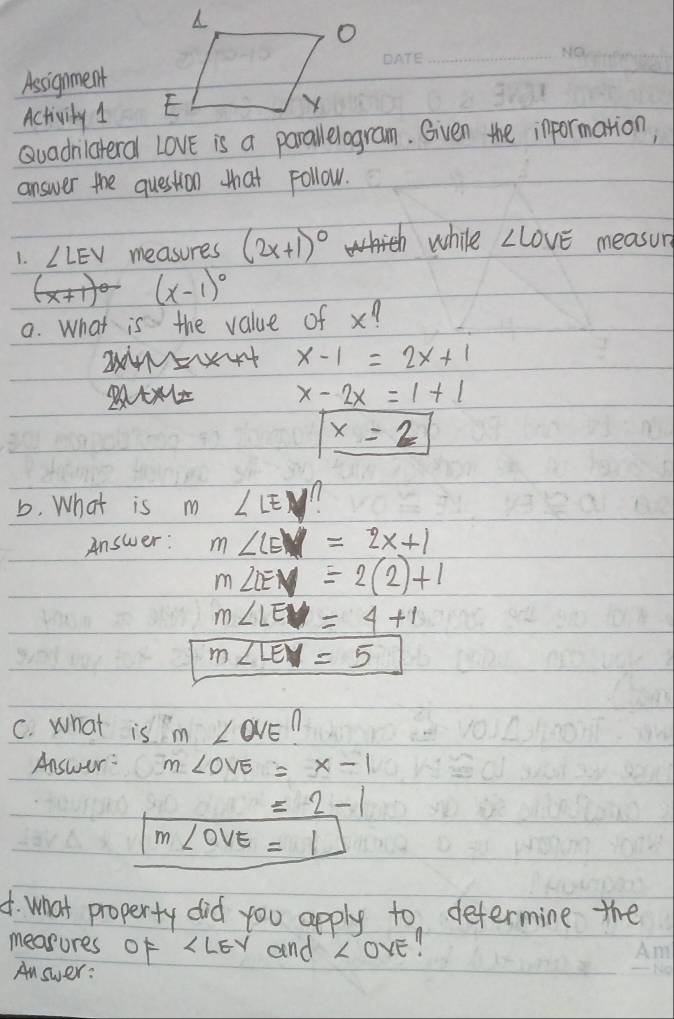 L
O
DATE
NO
Assignment
Activity 1
E
V
Quadrilateral LOVE is a parallelogram. Given the information,
answer the question that Follow.
1. ∠LEV measures (2x+1)° which while ∠LOVE measur
(x+1)° (x-1)°
a. What is the value of x?
x-1 = 2x+1
x-2x = 1+1
x = 2
b. What is m ∠LEV?
Answer: m ∠LEV = 2x+1
m ∠LEV = 2(2)+1
m ∠LEV = 4+1
m ∠LEV = 5
c. What is m ∠OVE?
Answer: m ∠OVE = x-1
= 2-1
m ∠OVE = 1
d. What property did you apply to determine the
measures of ∠LEV and ∠OVE?
Answer:
Am
No